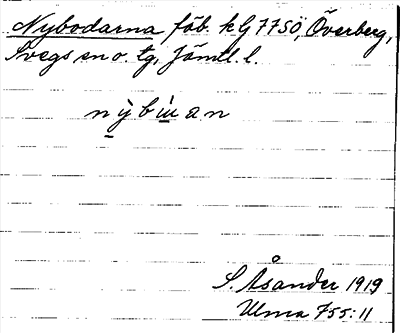 Nybodarna fäb. kG 77SÖ, Överberg,
Svegs sn o. tg, Jämtl. l.
nỳbùan
S. Åsander 1919
Ulma 755:11